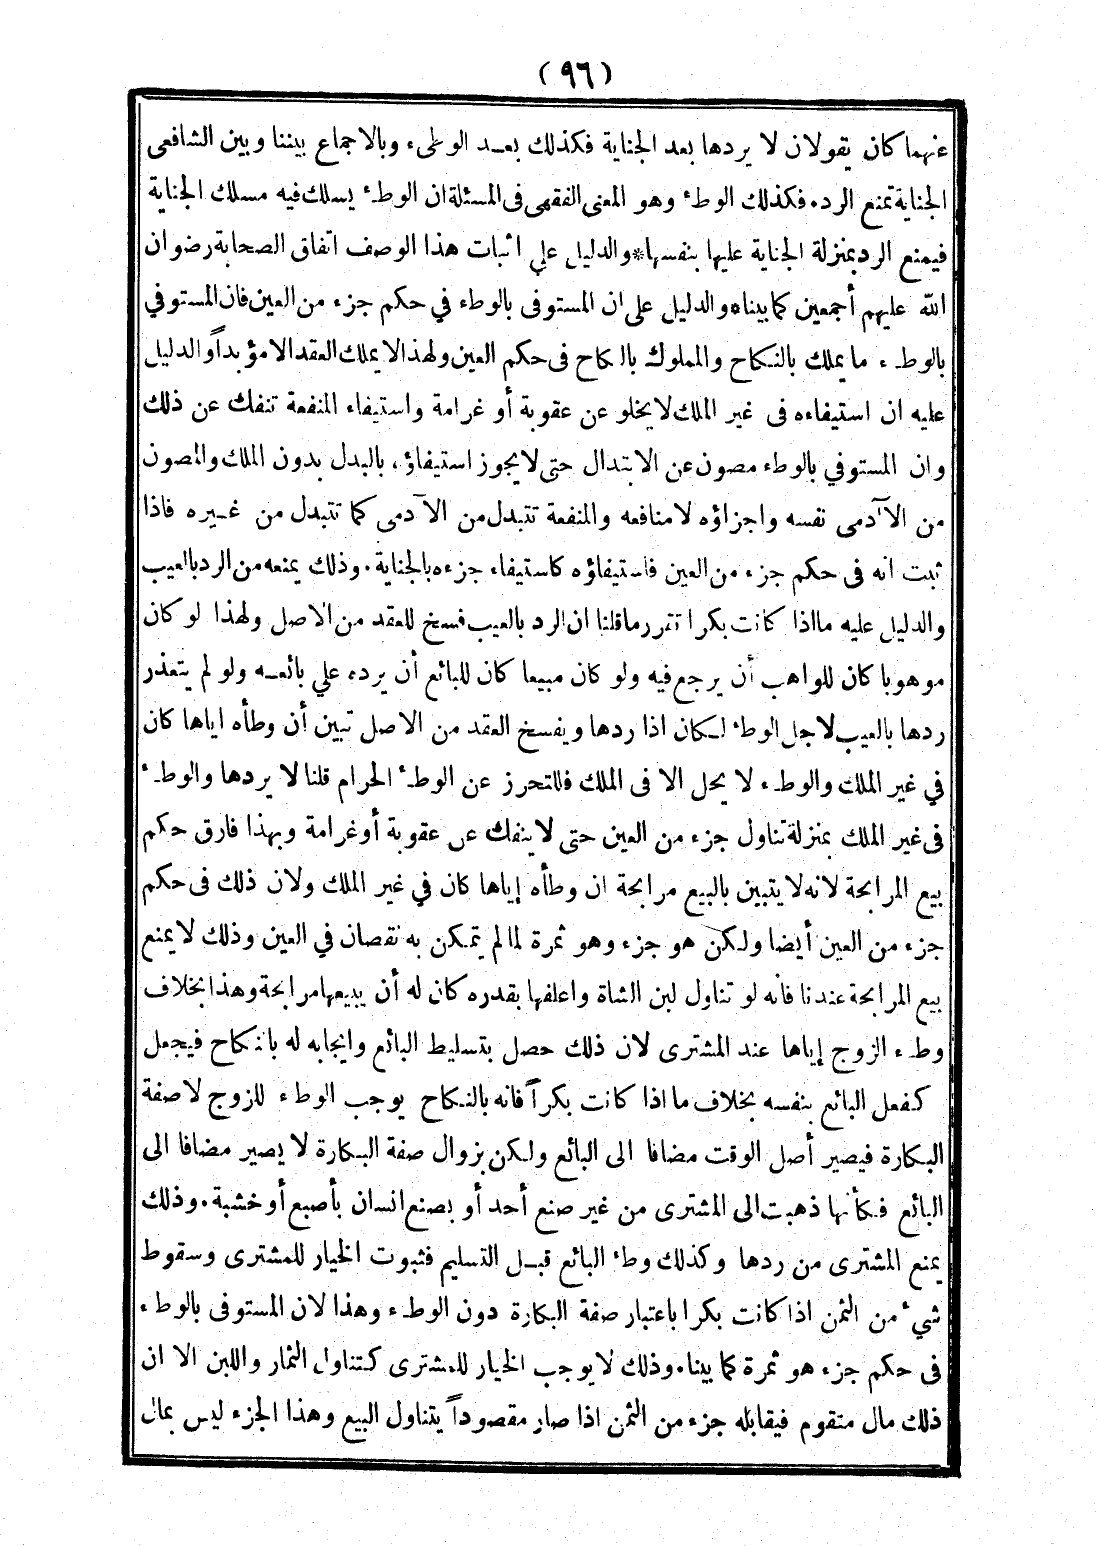 (٩٦)
عنهما كان يقولان لا يردها بعد الجناية فكذلك بعد الوطىء وبالاجماع بيننا وبين الشافعى
الجناية تمنع الرد. فكذلك الوطء وهو المعنى الفقهى فى المسئلة ان الوطء يسلك فيه مسلك الجناية
فيمنع الرد بمنزلة الجناية عليها بنفسها * والدليل علي اثبات هذا الوصف اتفاق الصحابة رضوان
الله عليهم أجمعين كما بيناه والدليل على ان المستوفى بالوطء في حكم جزء من العين فان المستوفي
بالوطء ما يملك بالنكاح والمملوك بالنكاح فى حكم العين ولهذا لا يملك العقد الا مؤبداً والدليل
عليه ان استيفاءه فى غير الملك لا يخلو عن عقوبة أو غرامة واستيفاء المنفعة تنفك عن ذلك
وان المستوفي بالوطء مصون عن الابتدال حتى لا يجوز استيفاؤه بالبدل بدون الملك والمصون
من الآدمى نفسه واجزاؤه لا منافعه والمنفعة تتبدل من الآدمى كما تتبدل من غيره فاذا
ثبت انه فى حكم جزء من العين فاستيفاؤه كاستيفاء جزءه بالجناية. وذلك يمنعه من الرد بالعيب
والدليل عليه مااذا كانت بكرا تقرر ماقلنا ان الرد بالعيب فسخ للعقد من الاصل ولهذا لو كان
موهوبا كان للواهب أن يرجع فيه ولو كان مبيعا كان للبائع أن يرده علي بائعه ولو لم يتعذر
ردها بالعيب لاجل الوطء لكان اذا ردها ويفسخ العقد من الاصل تبين أن وطأه اياها كان
في غير الملك والوطء لا يحل الا فى الملك فللتحرز عن الوطء الحرام قلنا لا يردها والوطء
فى غير الملك بمنزلة تناول جزء من العين حتى لا ينفك عن عقوبة أو غرامة وبهذا فارق حكم
بيع المرابحة لانه لا يتبين بالبيع مرابحة ان وطأه إياها كان في غير الملك ولان ذلك فى حكم
جزء من العين أيضا ولكن هو جزء وهو ثمرة لما لم يتمكن به نقصان في العين وذلك لا يمنع
بيع المرابحة عندنا فانه لو تناول لبن الشاة واعلفها بقدره كان له أن يبيعها مرابحة وهذا بخلاف
وطء الزوج إياها عند المشترى لان ذلك حصل بتسليط البائع وايجابه له بالنكاح فيجعل
كفعل البائع بنفسه بخلاف ما اذا كانت بكراً فانه بالنكاح يوجب الوطء للزوج لا صفة
البكارة فيصير أصل الوقت مضافا الى البائع ولكن بزوال صفة البكارة لا يصير مضافا الى
البائع فكأنها ذهبت الى المشترى من غير صنع أحد أو بصنع انسان بأصبع أو خشبة. وذلك
يمنع المشترى من ردها وكذلك وطء البائع قبل التسليم فثبوت الخيار للمشترى وسقوط
شيء من الثمن اذا كانت بكرا باعتبار صفة البكارة دون الوطء وهذا لان المستوفى بالوطء
فى حكم جزء هو ثمرة كما بينا. وذلك لا يوجب الخيار للمشترى كتناول الثمار واللبن الا ان
ذلك مال متقوم فيقابله جزء من الثمن اذا صار مقصوداً يتناول البيع وهذا الجزء ليس بمال